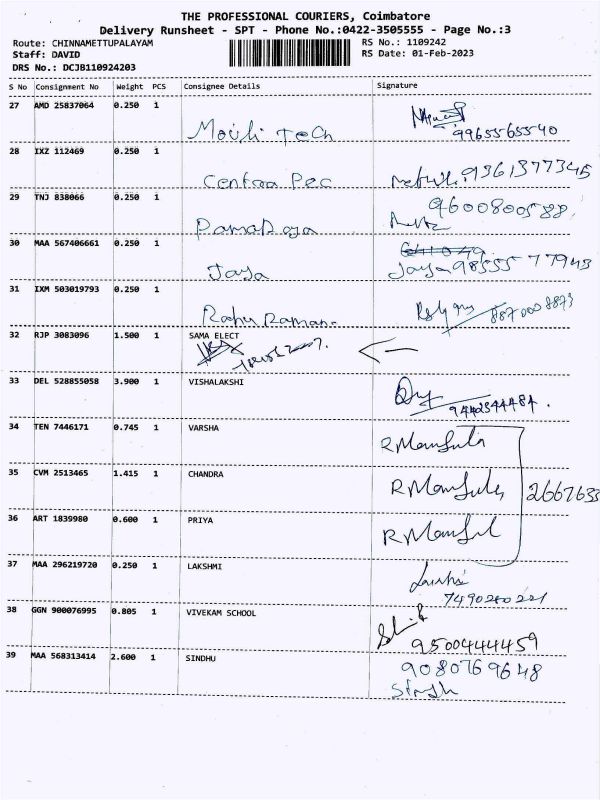 THE PROFESSIONAL COURIERS, Coimbatore
Delivery Runsheet - SPT - Phone No.:0422-3505555 - Page No.:3
Route: CHINNAMETTUPALAYAM RS No.: 1109242
Staff: DAVID RS Date: 01-Feb-2023
DRS No.: DCJB110924203
S No Consignment No Weight PCS Consignee Details Signature
27 AMD 25837064 0.250 1
Mouli Tech 9965565540
28 IXZ 112469 0.250 1
Centra Pec 9361377345
29 TNJ 838066 0.250 1
9600800588
30 MAA 567406661 0.250 1
Jaya Jaya 98555 77943
31 IXM 503019793 0.250 1
8870008873
32 RJP 3083096 1.500 1 SAMA ELECT
33 DEL 528855058 3.900 1 VISHALAKSHI
9442344484.
34 TEN 7446171 0.745 1 VARSHA
R Manjula
35 CVM 2513465 1.415 1 CHANDRA
R Manjula 2667633
36 ART 1839980 0.600 1 PRIYA
R Manjul
37 MAA 296219720 0.250 1 LAKSHMI
7490200221
38 GGN 900076995 0.805 1 VIVEKAM SCHOOL
9500444459
39 MAA 568313414 2.600 1 SINDHU 9080769648